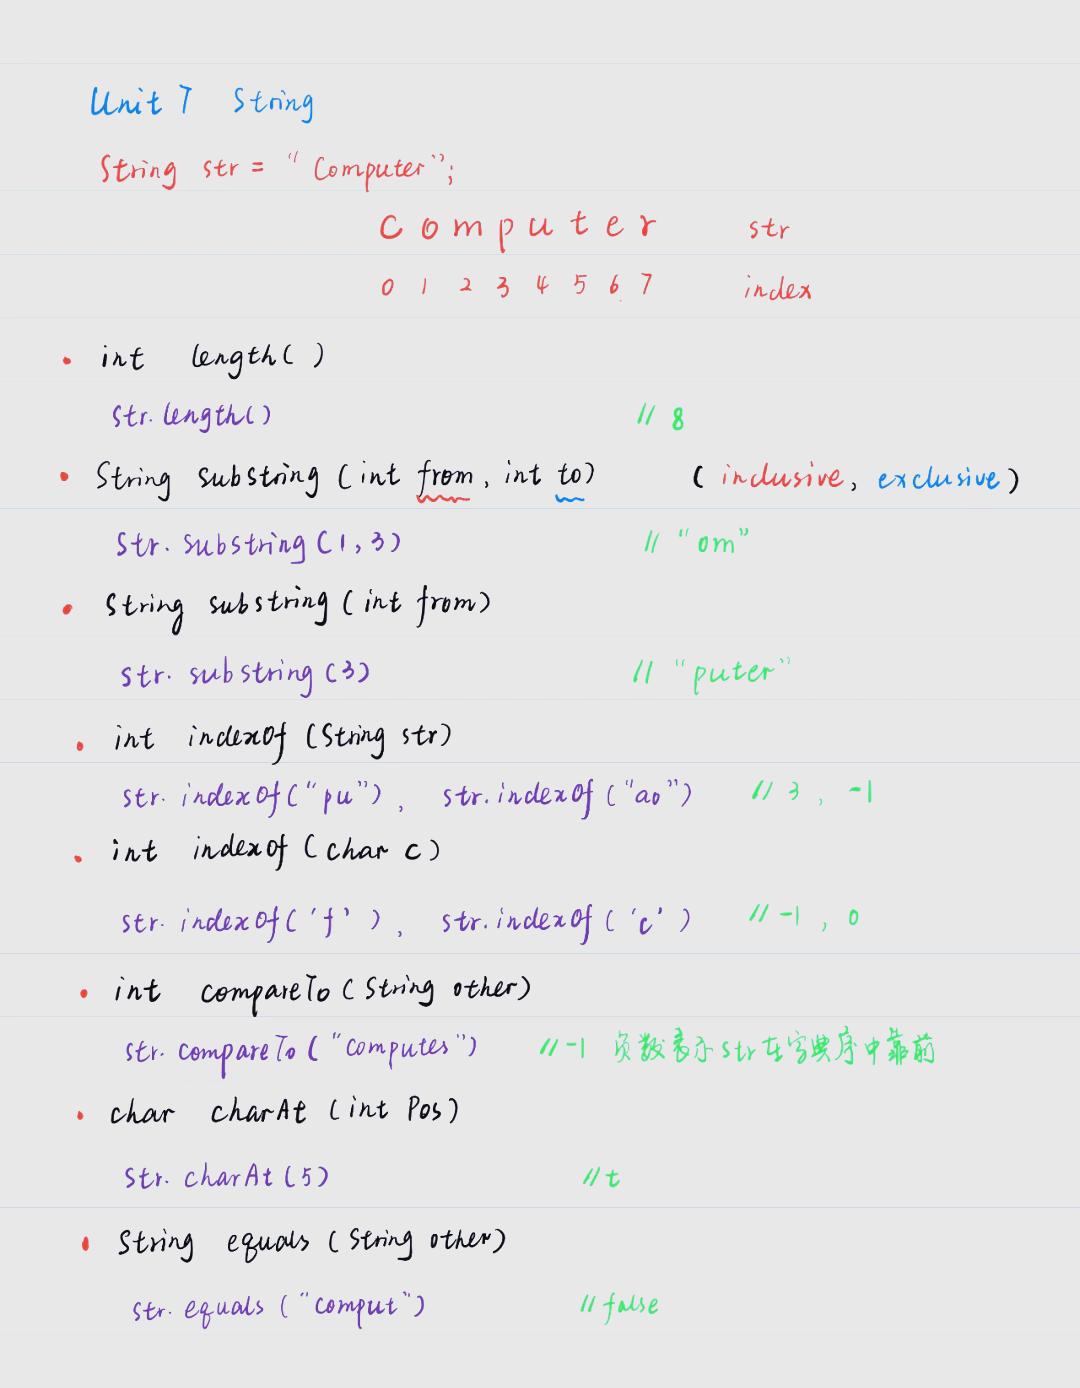 Unit 7 String
String str = "Computer";
C o m p u t e r str
0 1 2 3 4 5 6 7 index
• int length( )
str.length() // 8
• String substring (int from, int to) (inclusive, exclusive)
str.substring(1,3) // "om"
• String substring (int from)
str.substring(3) // "puter"
• int indexOf (String str)
str.indexOf("pu"), str.indexOf("ao") // 3, -1
• int indexof (char c)
str.indexOf('f'), str.indexOf('c') // -1, 0
• int compareTo (String other)
str.compareTo("computes") // -1 负数表示str在字典序中靠前
• char charAt (int Pos)
str.charAt(5) // t
• String equals (String other)
str.equals ("comput") // false